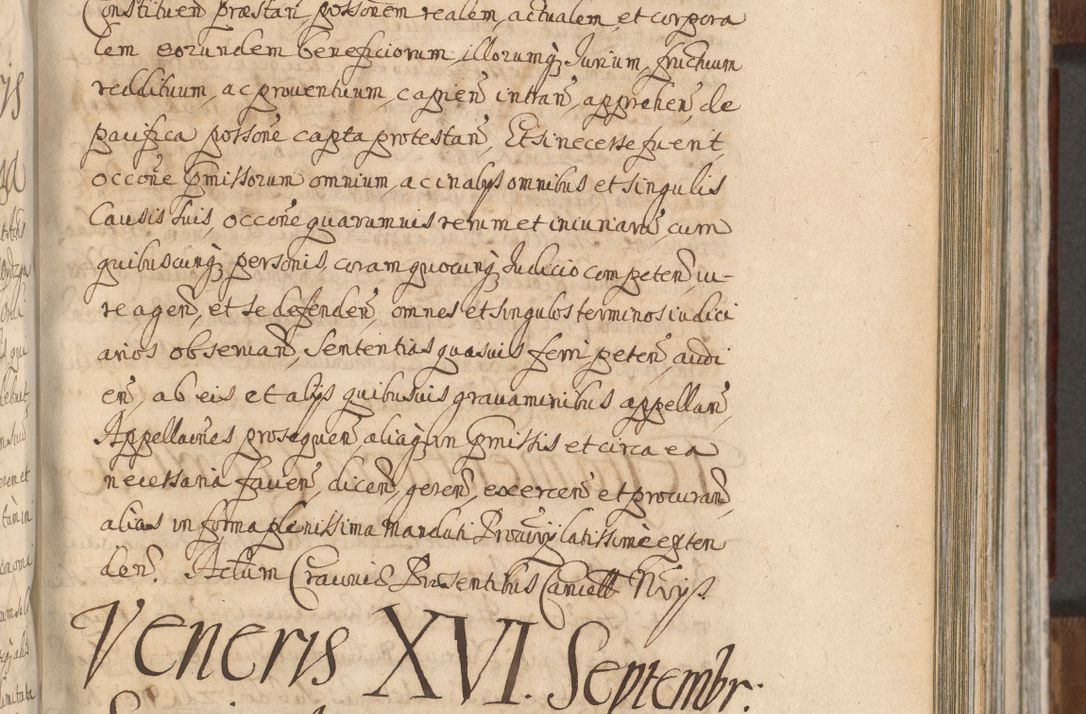 Constituen̄ præstan̄ possonem realem, actualem, et corpora
lem eorundem beneficiorum, illorumq̨ Iurium, fructuum
reddituum, ac proventuum, capien̄ intran̄, apprehen̄, de
pacifica possone capta protestan̄, Et si necesse fuerit,
occone p̄missorum omnium, ac in alys omnibus et singulis
Causis suis, occone quarumuis rerum et iniuriarū, cum
quibuscunq̨ personis, coram quocunq̨ Iudicio competen̄, iu-
re agen̄, et se defenden̄, omnes et singulos terminos iudici
arios obseruan̄, Sententias quasuis ferri peten̄, audi
en̄, ab eis et alys quibusuis grauaminibus appellan̄,
Appellaones prosequen̄, aliaq̨ in p̄missis et circa ea
necessaria facien̄, dicen̄, geren̄, exercen̄ et procuran̄
alias in forma plenissima Mandati Procury latissime exten
den̄. Actum Cracouiæ Præsentibus
Veneris XVI. Septembr: